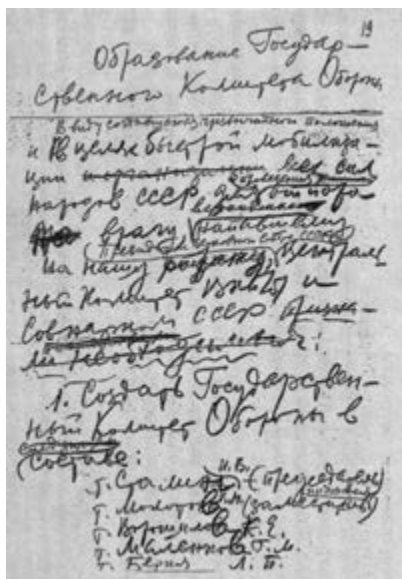 19
Образование Государ-
ственного Комитета Обороны
Ввиду создавшегося чрезвычайного положения
и в целях быстрой мобилиза-
ции всех сил
народов СССР для отпора
врагу напавшему
на нашу родину, Централь-
ный Комитет ВКП(б) и
Совнарком СССР призна-
ли необходимым:
1. Создать Государствен-
ный Комитет Обороны в
составе:
т. Сталин И.В. (председатель)
т. Молотов В.М. (заместитель)
т. Ворошилов К.Е.
т. Маленков Г.М.
т. Берия Л.П.